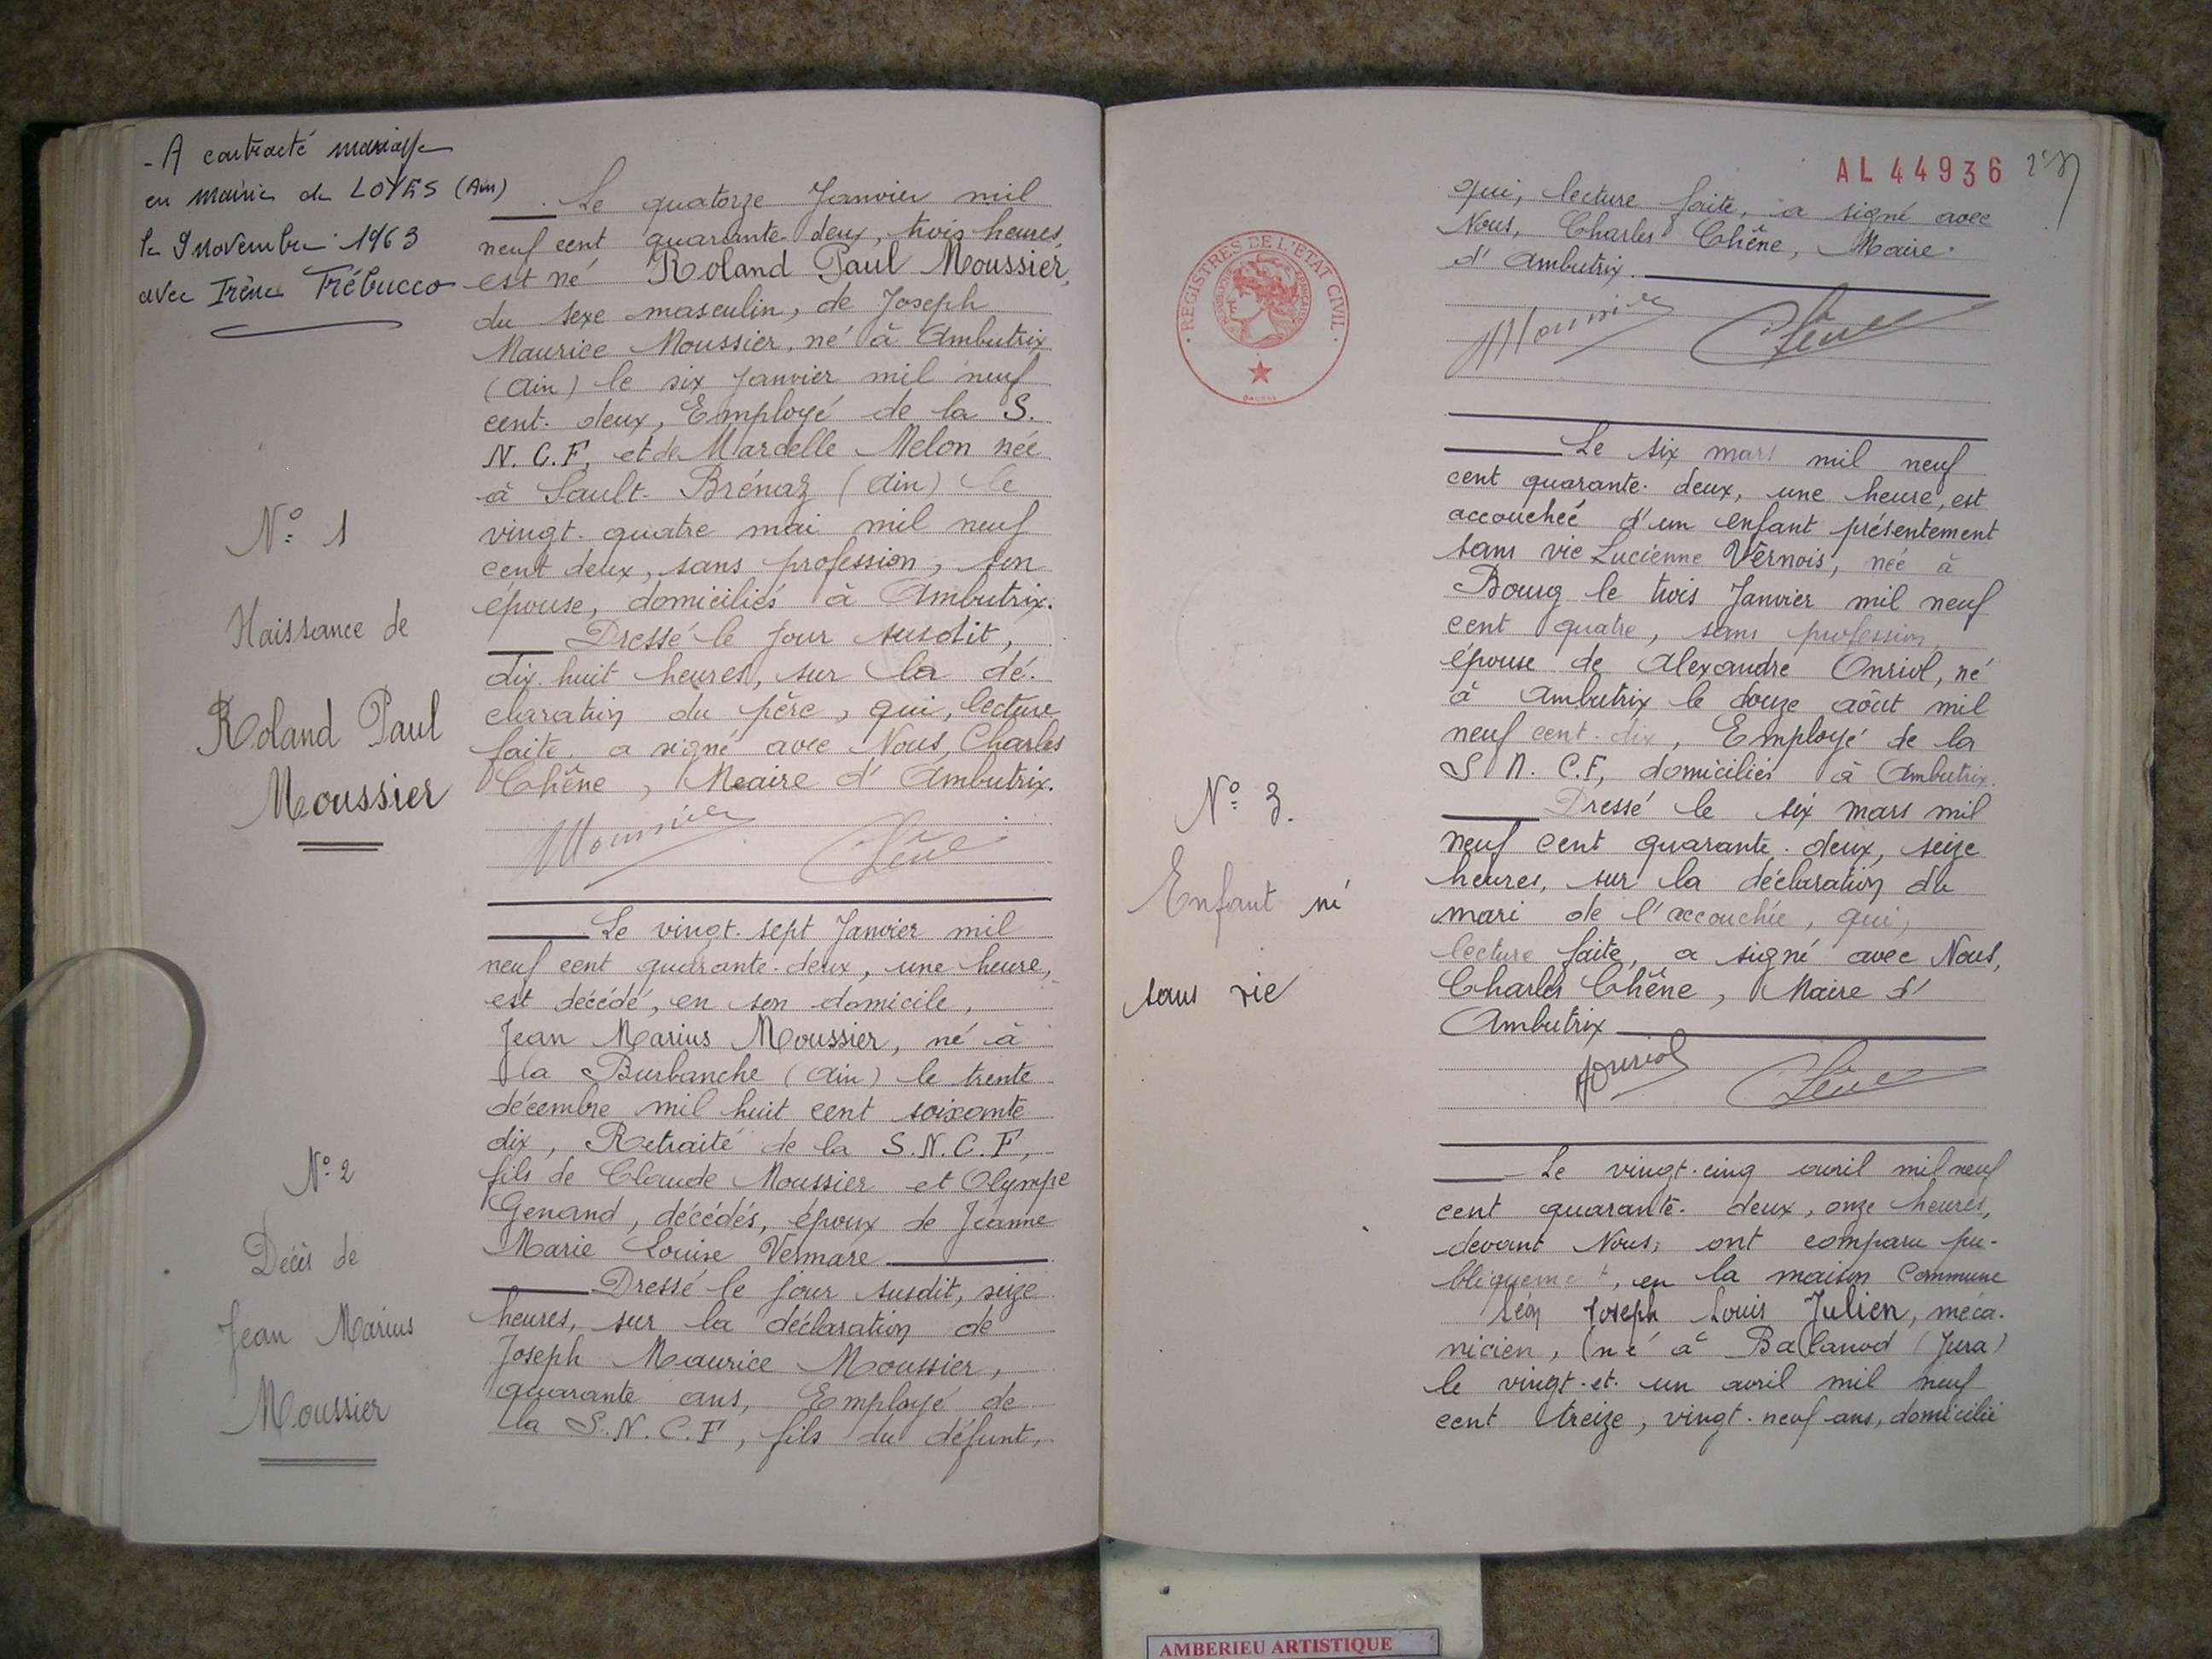 - A contracté mariage
en mairie de LOYES (Ain)
le 9 novembre 1963
avec Irène Trébucco
N° 1
Naissance de
Roland Paul
Moussier
Le quatorze Janvier mil
neuf cent quarante deux, trois heures,
est né Roland Paul Moussier,
du sexe masculin, de Joseph
Maurice Moussier, né à Ambutrix
(Ain) le six Janvier mil neuf
cent. deux, Employé de la S.
N. C. F, et de Marcelle Melon née
à Sault. Brénaz (Ain) le
vingt. quatre mai mil neuf
cent deux, sans profession, son
épouse, domiciliés à Ambutrix.
Dressé le jour susdit,
dix. huit heures, sur la dé.
claration du père, qui, lecture
faite, a signé avec Nous, Charles
Chêne, Maire d' Ambutrix.
Moussier Chêne
N° 2
Décès de
Jean Marius
Moussier
Le vingt. sept Janvier mil
neuf cent quarante. deux, une heure,
est décédé, en son domicile,
Jean Marius Moussier, né à
la Burbanche (Ain) le trente
décembre mil huit cent soixante
dix, Retraité de la S.N.C.F,
fils de Claude Moussier et Olympe
Genand, décédés, époux de Jeanne
Marie Louise Vermare
Dressé le jour susdit, seize
heures, sur la déclaration de
Joseph Maurice Moussier,
quarante ans, Employé de
la S. N. C. F, fils du défunt,
AL 44936
qui, lecture faite, a signé avec
Nous, Charles Chêne, Maire
d' Ambutrix.
Moussier Chêne
REGISTRES DE L'ETAT CIVIL
REPUBLIQUE FRANÇAISE
N° 3.
Enfant né
sans vie
Le six mars mil neuf
cent quarante. deux, une heure, est
accouchée d'un enfant présentement
sans vie Lucienne Vernois, née à
Bourg le trois Janvier mil neuf
cent quatre, sans profession,
épouse de Alexandre Onriol, né
à Ambutrix le douze août mil
neuf cent. dix, Employé de la
S N. C.F, domiciliés à Ambutrix.
Dressé le six mars mil
neuf cent quarante. deux, seize
heures, sur la déclaration du
mari de l'accouchée, qui,
lecture faite, a signé avec Nous,
Charles Chêne, Maire d'
Ambutrix
AOnriol Chêne
Le vingt. cinq avril mil neuf
cent quarante. deux, onze heures,
devant Nous, ont comparu pu-
bliquement, en la maison Commune
Léon Joseph Louis Julien, méca.
nicien, né à Balanod (Jura)
le vingt. et. un avril mil neuf
cent treize, vingt. neuf ans, domicilié
AMBERIEU ARTISTIQUE